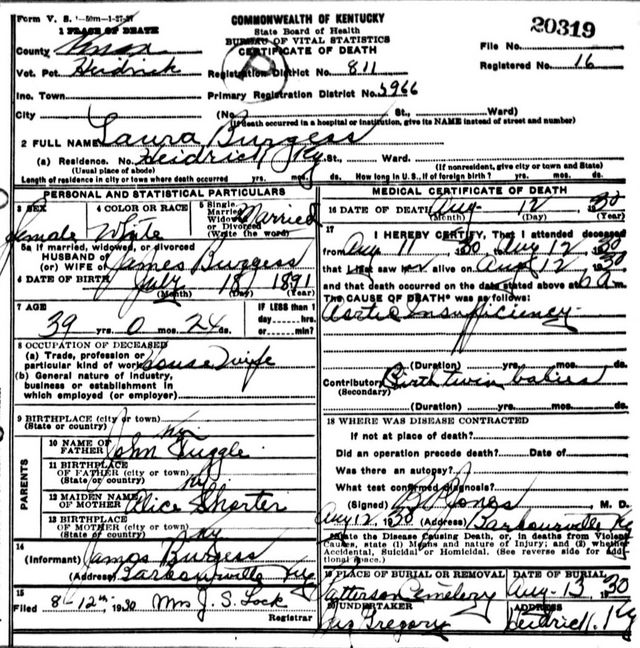 Form V. S.
COMMONWEALTH OF KENTUCKY
State Board of Health
BUREAU OF VITAL STATISTICS
CERTIFICATE OF DEATH
20319
File No.
Registered No. 16
1 PLACE OF DEATH
County Knox
Vot. Pct. Heidrick
Registration District No. 811
Inc. Town
Primary Registration District No. 5966
City (No. St., Ward)
(If death occurred in a hospital or institution, give its NAME instead of street and number)
2 FULL NAME Laura Burgess
(a) Residence. No. Heidrick Ky St., Ward.
(Usual place of abode) (If nonresident, give city or town and State)
Length of residence in city or town where death occurred yrs. mos. ds. How long in U.S., if of foreign birth? yrs. mos. ds.
PERSONAL AND STATISTICAL PARTICULARS
3 SEX 4 COLOR OR RACE 5 Single, Married, Widowed or Divorced (Write the word)
Female White Married
5a If married, widowed, or divorced
HUSBAND OF
(or) WIFE of James Burgess
6 DATE OF BIRTH July 18 1891
(Month) (Day) (Year)
7 AGE IF LESS than 1
39 yrs. 0 mos. 24 ds. day hrs. or min?
8 OCCUPATION OF DECEASED
(a) Trade, profession or
particular kind of work House Wife
(b) General nature of industry,
business or establishment in
which employed (or employer)
9 BIRTHPLACE (city or town)
(State or country) Ky
PARENTS
10 NAME OF
FATHER John Tuggle
11 BIRTHPLACE
OF FATHER (city or town)
(State or country) Ky
12 MAIDEN NAME
OF MOTHER Alice Shorter
13 BIRTHPLACE
OF MOTHER (city or town)
(State or country) Ky
14
(Informant) James Burgess
(Address) Barbourville Ky
15
Filed 8-12th 1930 Mrs J. S. Lock
Registrar
MEDICAL CERTIFICATE OF DEATH
16 DATE OF DEATH Aug 12 1930
(Month) (Day) (Year)
17 I HEREBY CERTIFY, That I attended deceased
from Aug 11, 1930 to Aug 12, 1930
that I last saw her alive on Aug 12, 1930
and that death occurred on the date stated above at 6 a.m.
The CAUSE OF DEATH* was as follows:
Aortic Insufficiency
(Duration) yrs. mos. ds.
Contributory Birth twin babies
(Secondary)
(Duration) yrs. mos. ds.
18 WHERE WAS DISEASE CONTRACTED
If not at place of death?
Did an operation precede death? Date of
Was there an autopsy?
What test confirmed diagnosis?
(Signed) Jones M. D.
Aug 12 1930 (Address) Barbourville Ky
*State the Disease Causing Death, or, in deaths from Violent
Causes, state (1) Means and nature of Injury; and (2) whether
Accidental, Suicidal or Homicidal. (See reverse side for addi-
tional space.)
19 PLACE OF BURIAL OR REMOVAL DATE OF BURIAL
Patterson Cemetery Aug-13, 1930
20 UNDERTAKER ADDRESS
Gregory Heidrick, Ky